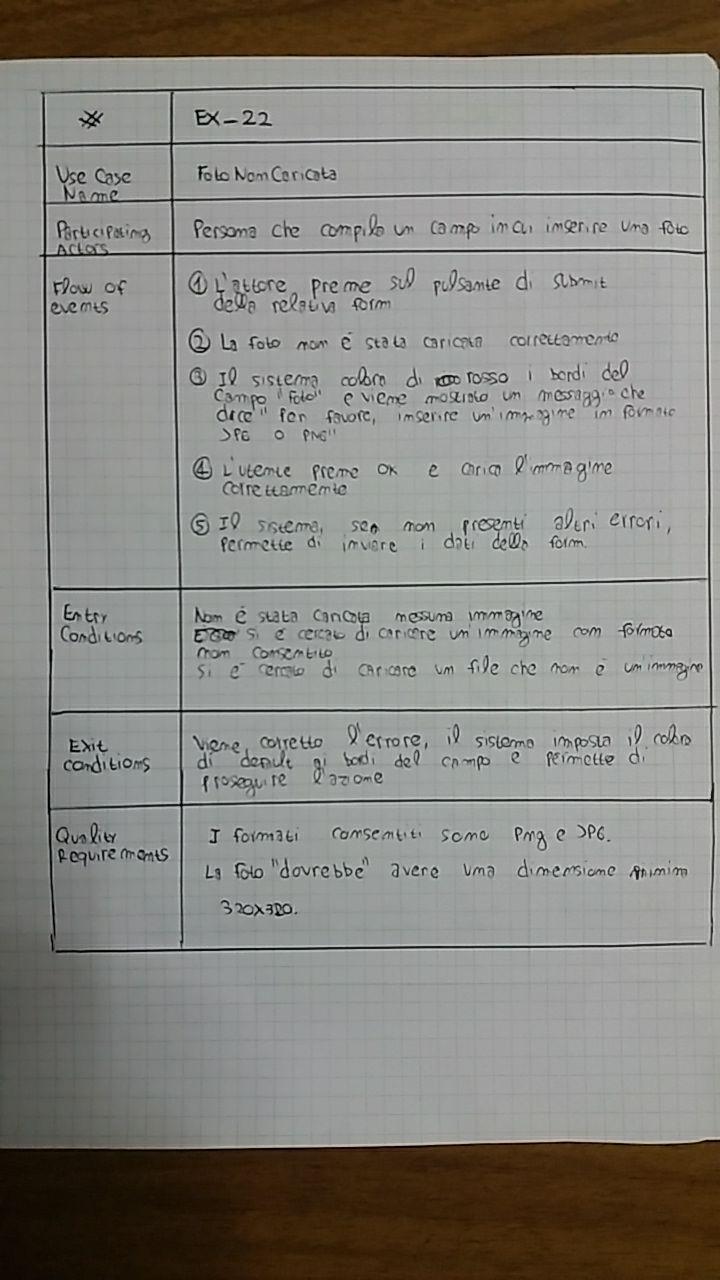 # EX-22
Use Case
Name
Foto Non Caricata
Participating
Actors
Persona che compila un campo in cui inserire una foto
Flow of
events
① L'attore preme sul pulsante di submit
della relativa form
② La foto non è stata caricata correttamente
③ Il sistema colora di rosso i bordi del
campo "foto" e viene mostrato un messaggio che
dice "Per favore, inserire un'immagine in formato
JPG O PNG"
④ L'utente preme OK e carica l'immagine
correttamente
⑤ Il sistema, se non presenti altri errori,
permette di inviare i dati della form.
Entry
Conditions
Non è stata caricata nessuna immagine
Si è cercato di caricare un'immagine con formato
non consentito
Si è cercato di caricare un file che non è un'immagine
Exit
conditions
Viene corretto l'errore, il sistema imposta il colore
di default ai bordi del campo e permette di
proseguire l'azione
Quality
Requirements
I formati consentiti sono Png e JPG.
La foto "dovrebbe" avere una dimensione minima
320X320.